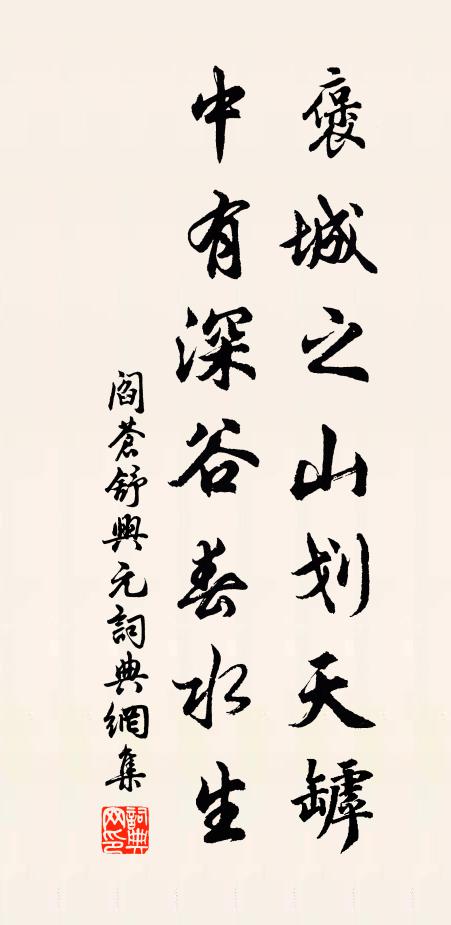 褒城之山划天罅
中有深谷春水生
阎苍舒興元詞典網集
詞典網印